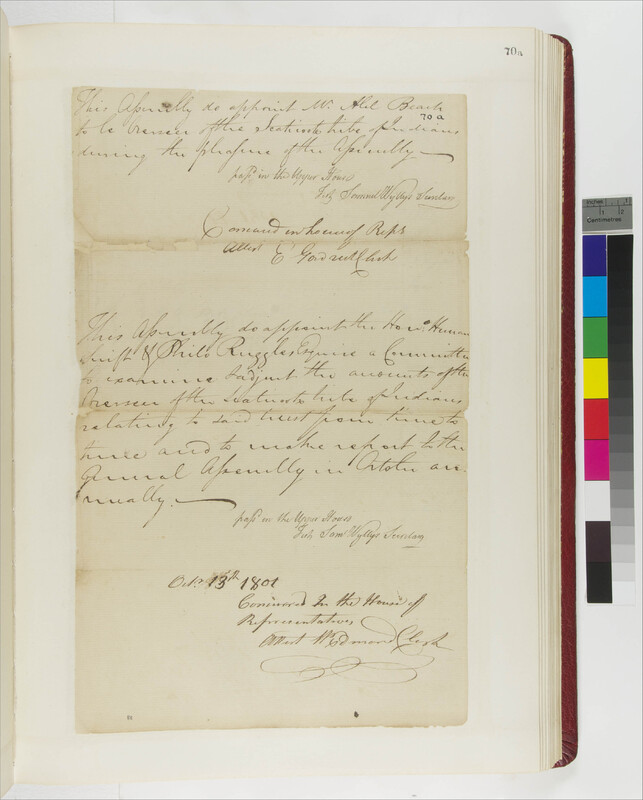 70a
This Assembly do appoint Mr. Abel Beach
70a
to be Overseer of the Scaticook tribe of Indians
during the pleasure of the Assembly
pass'd in the Upper House
Test Samuel Wyllys Secretary
Concurred in house of Reps
Attest E Goodrich Clerk
This Assembly do appoint the Hon. Heman
Swift & Philo Ruggles Esquire a Committee
to examine & adjust the accounts of the
Overseer of the Scaticook tribe of Indians
relating to said trust from time to
time and to make report to the
General Assembly in October an-
nually.
pass'd in the Upper House
Test Sam Wyllys Secretary
Octr. 13th 1801
Concurred In the House of
Representatives
Attest Wm Edmond Clerk
inches
1
2
Centimetres